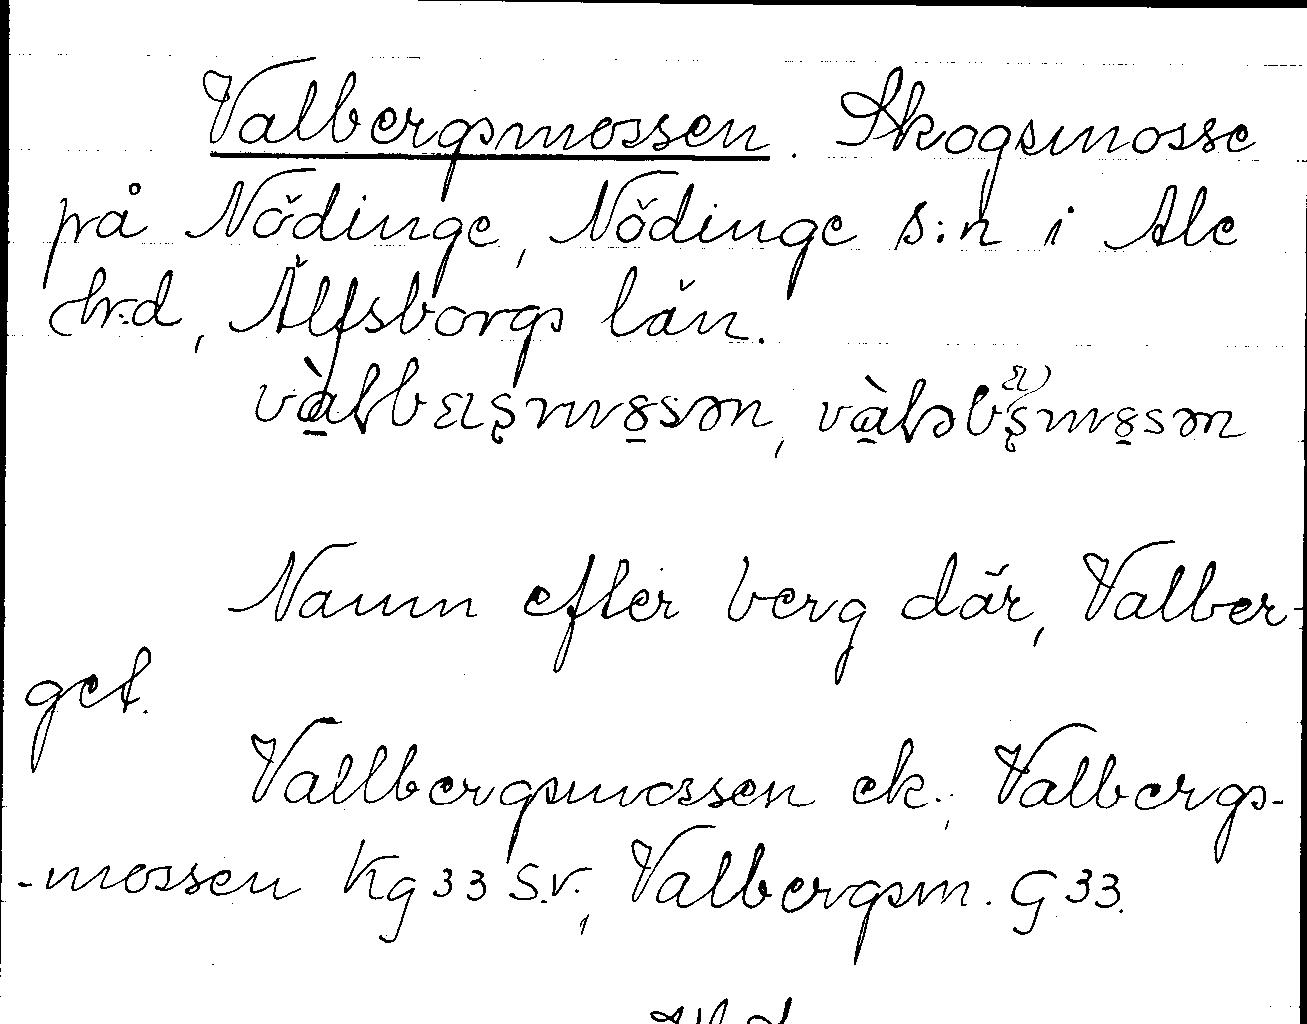 Valbergsmossen. Skogsmosse
på Nödinge, Nödinge s:n i Ale
hr:d, Älfsborgs län.
Namn efter berg där, Valber-
get.
Vallbergsmossen ek., Valbergs-
-mossen Kg 33 S.V., Valbergsm. G 33.